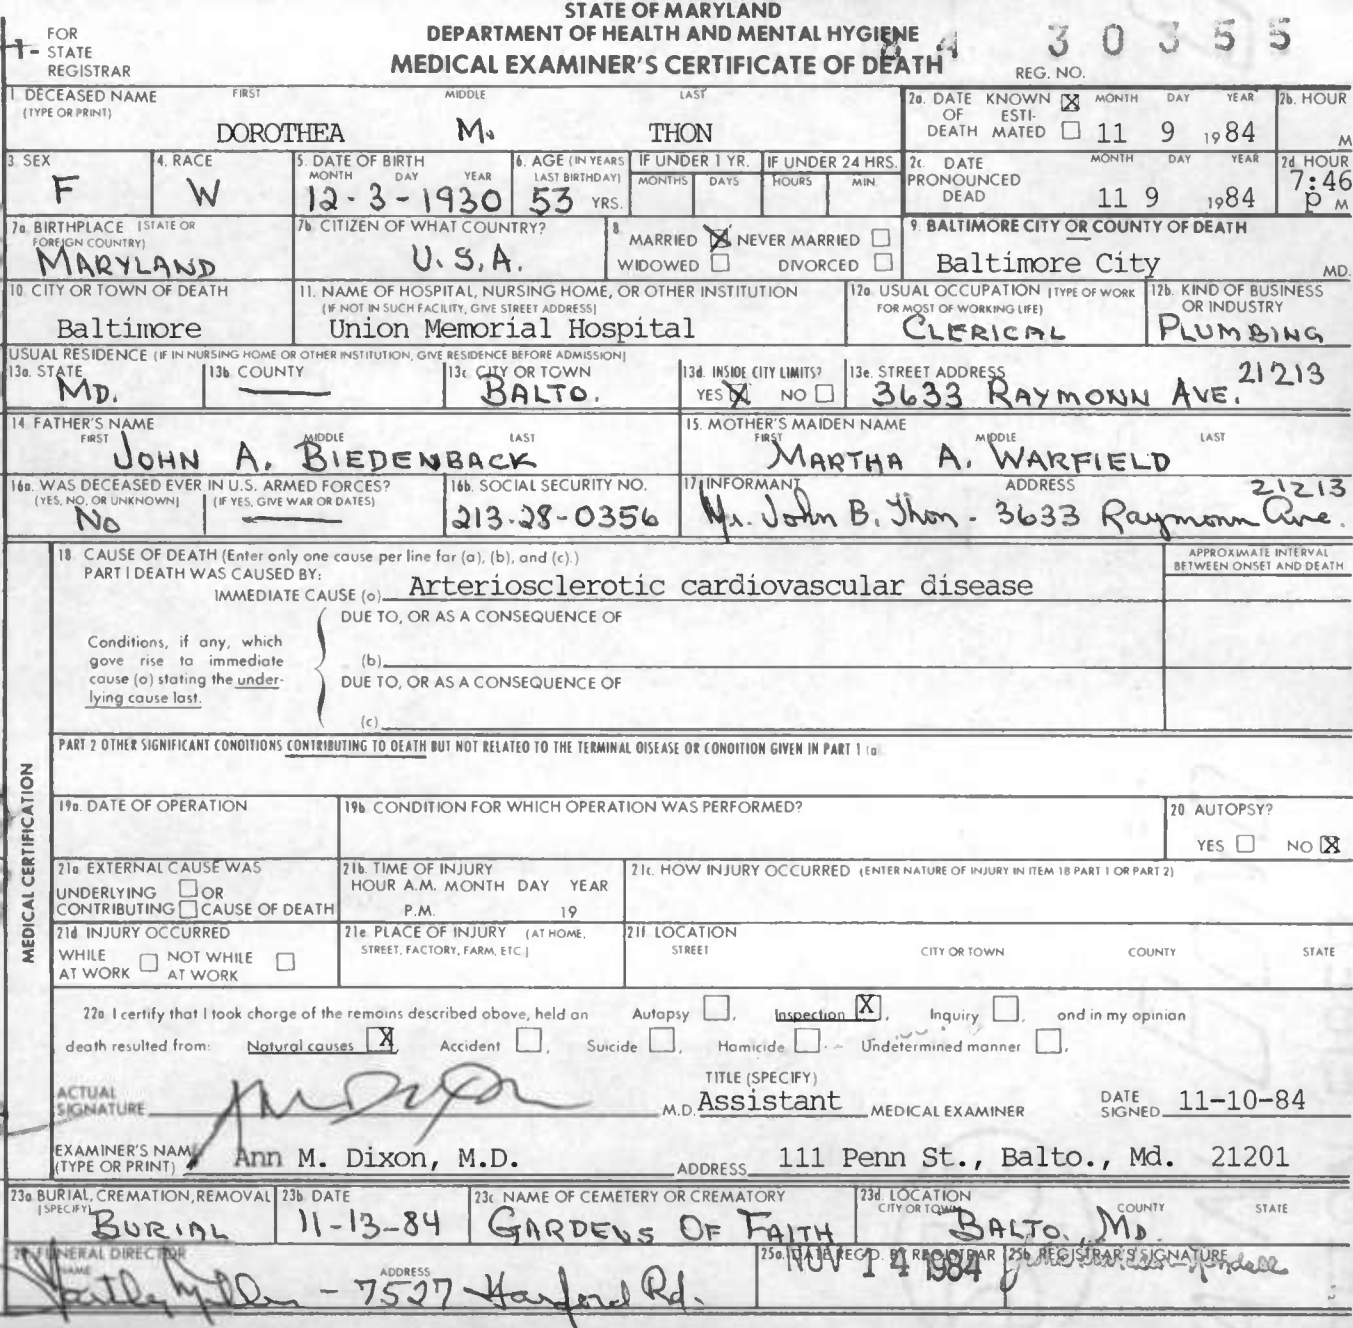 STATE OF MARYLAND
DEPARTMENT OF HEALTH AND MENTAL HYGIENE
MEDICAL EXAMINER'S CERTIFICATE OF DEATH
FOR STATE REGISTRAR
84 30355
REG. NO.
1. DECEASED NAME (TYPE OR PRINT) FIRST MIDDLE LAST
DOROTHEA M. THON
2a. DATE OF DEATH KNOWN ☒ ESTIMATED ☐ MONTH DAY YEAR 11 9 1984
2b. HOUR M
3. SEX F
4. RACE W
5. DATE OF BIRTH MONTH DAY YEAR 12-3-1930
6. AGE (IN YEARS LAST BIRTHDAY) 53 YRS.
IF UNDER 1 YR. MONTHS DAYS
IF UNDER 24 HRS. HOURS MIN.
2c. DATE PRONOUNCED DEAD MONTH DAY YEAR 11 9 1984
2d. HOUR 7:46 P M
7a. BIRTHPLACE (STATE OR FOREIGN COUNTRY) MARYLAND
7b. CITIZEN OF WHAT COUNTRY? U.S.A.
8. MARRIED ☒ NEVER MARRIED ☐
WIDOWED ☐ DIVORCED ☐
9. BALTIMORE CITY OR COUNTY OF DEATH
Baltimore City MD.
10. CITY OR TOWN OF DEATH
Baltimore
11. NAME OF HOSPITAL, NURSING HOME, OR OTHER INSTITUTION
(IF NOT IN SUCH FACILITY, GIVE STREET ADDRESS)
Union Memorial Hospital
12a. USUAL OCCUPATION (TYPE OF WORK FOR MOST OF WORKING LIFE)
CLERICAL
12b. KIND OF BUSINESS OR INDUSTRY
PLUMBING
USUAL RESIDENCE (IF IN NURSING HOME OR OTHER INSTITUTION, GIVE RESIDENCE BEFORE ADMISSION)
13a. STATE MD.
13b. COUNTY —
13c. CITY OR TOWN BALTO.
13d. INSIDE CITY LIMITS? YES ☒ NO ☐
13e. STREET ADDRESS 21213
3633 RAYMONN AVE.
14. FATHER'S NAME FIRST MIDDLE LAST
JOHN A. BIEDENBACK
15. MOTHER'S MAIDEN NAME FIRST MIDDLE LAST
MARTHA A. WARFIELD
16a. WAS DECEASED EVER IN U.S. ARMED FORCES?
(YES, NO, OR UNKNOWN) (IF YES, GIVE WAR OR DATES)
No —
16b. SOCIAL SECURITY NO.
213-28-0356
17. INFORMANT ADDRESS 21213
Mr. John B. Thon - 3633 Raymonn Ave.
MEDICAL CERTIFICATION
18. CAUSE OF DEATH (Enter only one cause per line for (a), (b), and (c).)
PART I DEATH WAS CAUSED BY:
IMMEDIATE CAUSE (a) Arteriosclerotic cardiovascular disease
APPROXIMATE INTERVAL BETWEEN ONSET AND DEATH
DUE TO, OR AS A CONSEQUENCE OF
Conditions, if any, which gave rise to immediate cause (a) stating the underlying cause last.
(b)
DUE TO, OR AS A CONSEQUENCE OF
(c)
PART 2 OTHER SIGNIFICANT CONDITIONS CONTRIBUTING TO DEATH BUT NOT RELATED TO THE TERMINAL DISEASE OR CONDITION GIVEN IN PART 1 (a
19a. DATE OF OPERATION
19b. CONDITION FOR WHICH OPERATION WAS PERFORMED?
20. AUTOPSY?
YES ☐ NO ☒
21a. EXTERNAL CAUSE WAS
UNDERLYING ☐ OR
CONTRIBUTING ☐ CAUSE OF DEATH
21b. TIME OF INJURY
HOUR A.M. MONTH DAY YEAR
P.M. 19
21c. HOW INJURY OCCURRED (ENTER NATURE OF INJURY IN ITEM 18 PART 1 OR PART 2)
21d. INJURY OCCURRED
WHILE AT WORK ☐ NOT WHILE AT WORK ☐
21e. PLACE OF INJURY (AT HOME, STREET, FACTORY, FARM, ETC.)
21f. LOCATION
STREET CITY OR TOWN COUNTY STATE
22a. I certify that I took charge of the remains described above, held an Autopsy ☐, Inspection ☒, Inquiry ☐, and in my opinion
death resulted from: Natural causes ☒ Accident ☐, Suicide ☐, Homicide ☐ Undetermined manner ☐.
ACTUAL SIGNATURE
M.D. TITLE (SPECIFY) Assistant MEDICAL EXAMINER
DATE SIGNED 11-10-84
EXAMINER'S NAME (TYPE OR PRINT) Ann M. Dixon, M.D.
ADDRESS 111 Penn St., Balto., Md. 21201
23a. BURIAL, CREMATION, REMOVAL (SPECIFY) BURIAL
23b. DATE 11-13-84
23c. NAME OF CEMETERY OR CREMATORY
GARDENS OF FAITH
23d. LOCATION CITY OR TOWN COUNTY STATE
BALTO. MD.
24. FUNERAL DIRECTOR
NAME ADDRESS
- 7527 Harford Rd.
25a. DATE REC'D. BY REGISTRAR
NOV 14 1984
25b. REGISTRAR'S SIGNATURE